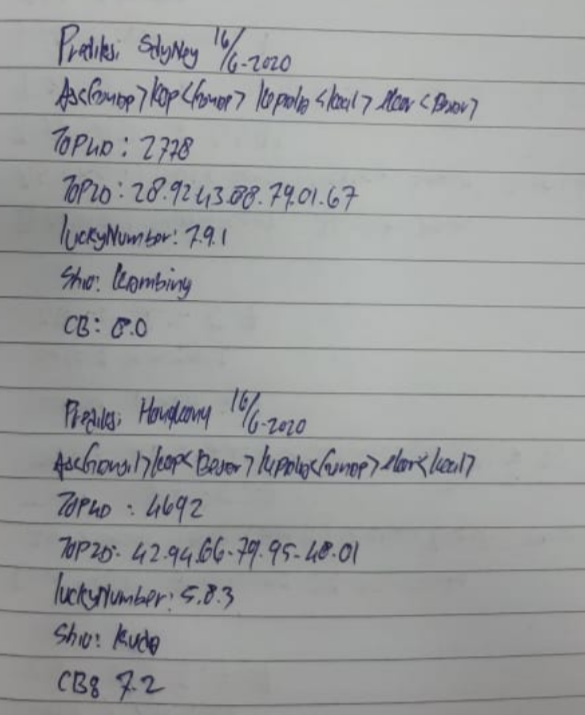 Prediksi Sdyney 16/6-2020
As<Genap> Kop<Genap> Kepala<Kecil> Ekor<Besar>
TOP4D : 2778
TOP2D : 28.92.43.88.79.01.67
LuckyNumber: 7.9.1
Shio: Kambing
CB: 8.0
Prediksi Hongkong 16/6-2020
As<Ganjil> Kop<Besar> Kepala<Genap> Ekor<Kecil>
TOP4D : 4692
TOP2D: 42.94.66-79.95-48.01
LuckyNumber: 5.8.3
Shio: Kuda
CB: 7.2